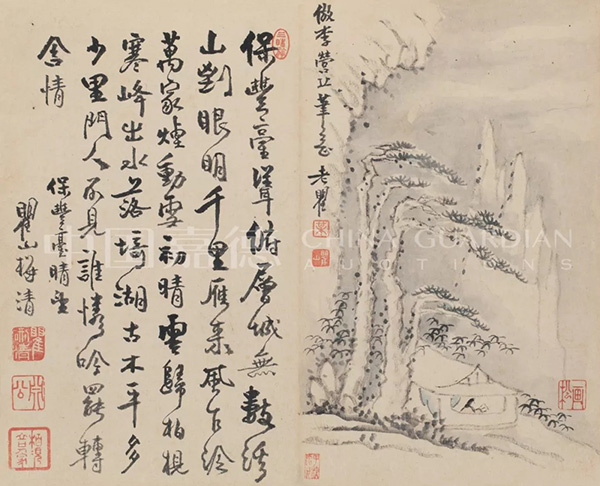 倣李營丘筆意 老瞿
保豐臺聳俯層城無數諸
山到眼明千里雁來風乍
萬家煙動雪初晴雲歸柏梘
寒峰出水落湖古木平多
少里門人不見誰憐吟罷轉
含情
保豐臺晴望
瞿山梅清
中国嘉德 CHINA GUARDIAN
AUCTIONS